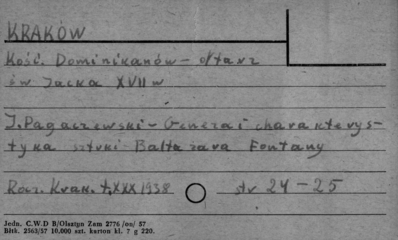 KRAKÓW
Kość. Dominikanów - ołtarz
św Jacka XVII w
J. Pagaczewski - Geneza i charakterys-
tyka sztuki Baltazara Fontany
Rocz. Krak. t. XXX 1938 str 24 - 25
Jedn. C.W.D B/Olsztyn Zam 2776 /on/ 57
Bibk. 2563/57 10,000 szt. karton kl. 7 g 220.